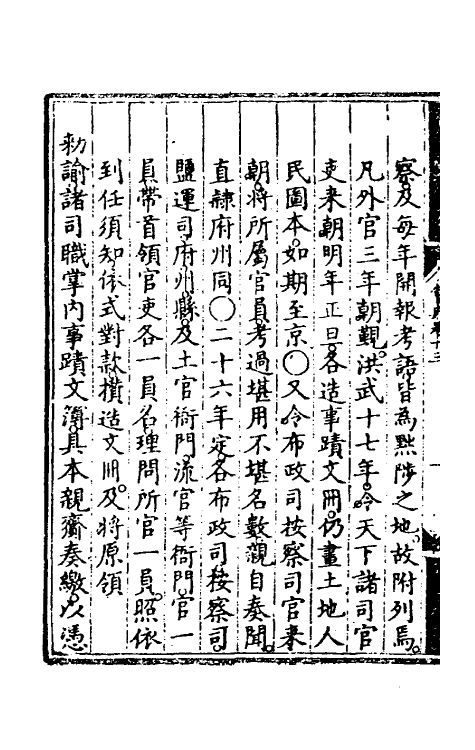 察及每年開報考語皆為黜陟之地故附列焉
凡外官三年朝覲洪武十七年令天下諸司官
吏来朝明年正旦各造事蹟文冊仍畫土地人
民圖本如期至京○又令布政司按察司官来
朝將所屬官員考過堪用不堪名數親自奏聞
直隷府州同○二十六年定各布政司按察司
鹽運司府州縣及土官衙門流官等衙門官一
員帶首領官吏各一員名理問所官一員照依
到任須知依式對款攢造文冊及將原領
勑諭諸司職掌内事蹟文簿具本親齎奏繳以憑